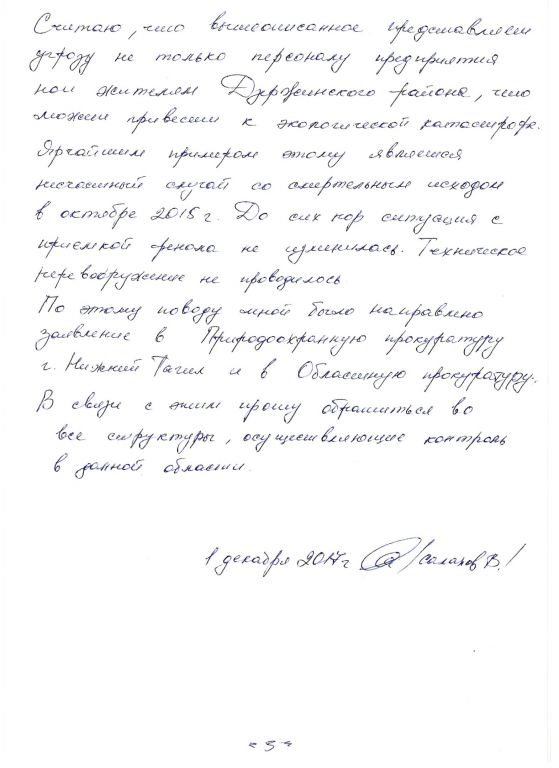 Считаю, что вышеописанное представляет
угрозу не только персоналу предприятия
но и жителям Дзержинского района, что
может привести к экологической катастрофе.
Ярчайшим примером этому является
несчастный случай со смертельным исходом
в октябре 2015 г. До сих пор ситуация с
приемкой фенола не изменилась. Техническое
перевооружение не проводилось
По этому поводу мной было направлено
заявление в Природоохранную прокуратуру
г. Нижний Тагил и в Областную прокуратуру.
В связи с этим прошу обратиться во
все структуры, осуществляющие контроль
в данной области.
1 декабря 2017 г /Салахов В./
"5"